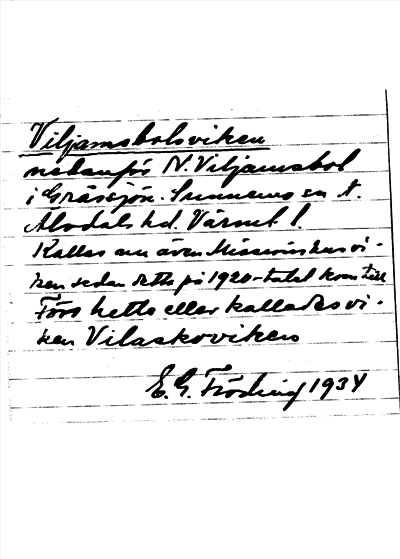 Viljamsbolsviken
nedanför N. Viljamsbol
i Gråssjön. Sunnemo sn Ä.
Älvdals hd. Värml. l.
Kallas nu även Missionshusvi-
ken sedan detta på 1920-talet kom till
Förr hette eller kallades vi-
ken Vilaskoviken
E. G. Fröding 1934